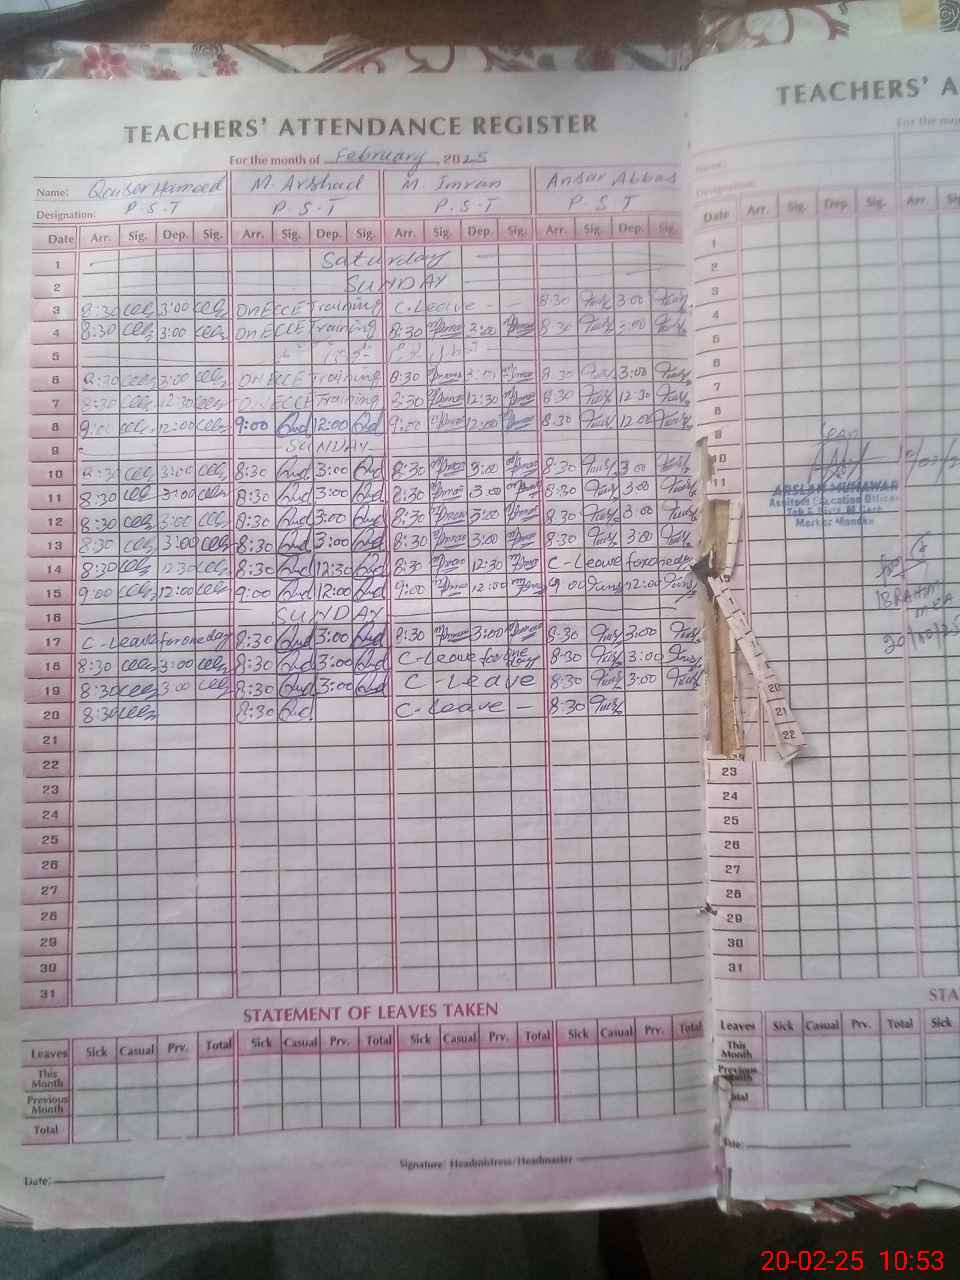 TEACHERS' ATTENDANCE REGISTER
For the month of February, 2025
Name: Qaiser Hameed M. Arshad M. Imran Ansar Abbas
Designation: P.S.T P.S.T P.S.T P.S.T
Date Arr. Sig. Dep. Sig. Arr. Sig. Dep. Sig. Arr. Sig. Dep. Sig. Arr. Sig. Dep. Sig.
1 Saturday
2 SUNDAY
3 8:30 3:00 On ECCE Training C.Leave - - 8:30 3:00
4 8:30 3:00 On ECCE Training 8:30 3:00 8:30 3:00
5
6 8:30 3:00 ON ECCE Training 8:30 3:00 8:30 3:00
7 8:30 12:30 ON ECCE Training 8:30 12:30 8:30 12:30
8 9:00 12:00 9:00 12:00 9:00 12:00 8:30 12:00
9 SUNDAY
10 8:30 3:00 8:30 3:00 8:30 3:00 8:30 3:00
11 8:30 3:00 8:30 3:00 8:30 3:00 8:30 3:00
12 8:30 3:00 8:30 3:00 8:30 3:00 8:30 3:00
13 8:30 3:00 8:30 3:00 8:30 3:00 8:30 3:00
14 8:30 12:30 8:30 12:30 8:30 12:30 C-Leave for one day
15 9:00 12:00 9:00 12:00 9:00 12:00 9:00 12:00
16 SUNDAY
17 C-Leave for one day 8:30 3:00 8:30 3:00 8:30 3:00
18 8:30 3:00 8:30 3:00 C-Leave for one day 8:30 3:00
19 8:30 3:00 8:30 3:00 C-Leave 8:30 3:00
20 8:30 8:30 C-Leave - 8:30
21
22
23
24
25
26
27
28
29
30
31
STATEMENT OF LEAVES TAKEN
Leaves Sick Casual Prv. Total Sick Casual Prv. Total Sick Casual Prv. Total Sick Casual Prv. Total
This Month
Previous Month
Total
Signature: Headmistress/Headmaster
Date:
TEACHERS' A
For the mo
Date Arr. Sig. Dep. Sig. Arr.
1
2
3
4
5
6
7
8
9
10
11
Seen
ARSLAN MUNAWAR
Assistant Education Officer
15
20
21
22
23
24
25
26
27
28
29
30
31
STA
Leaves Sick Casual Prv. Total Sick
This Month
Previous Month
20-02-25 10:53